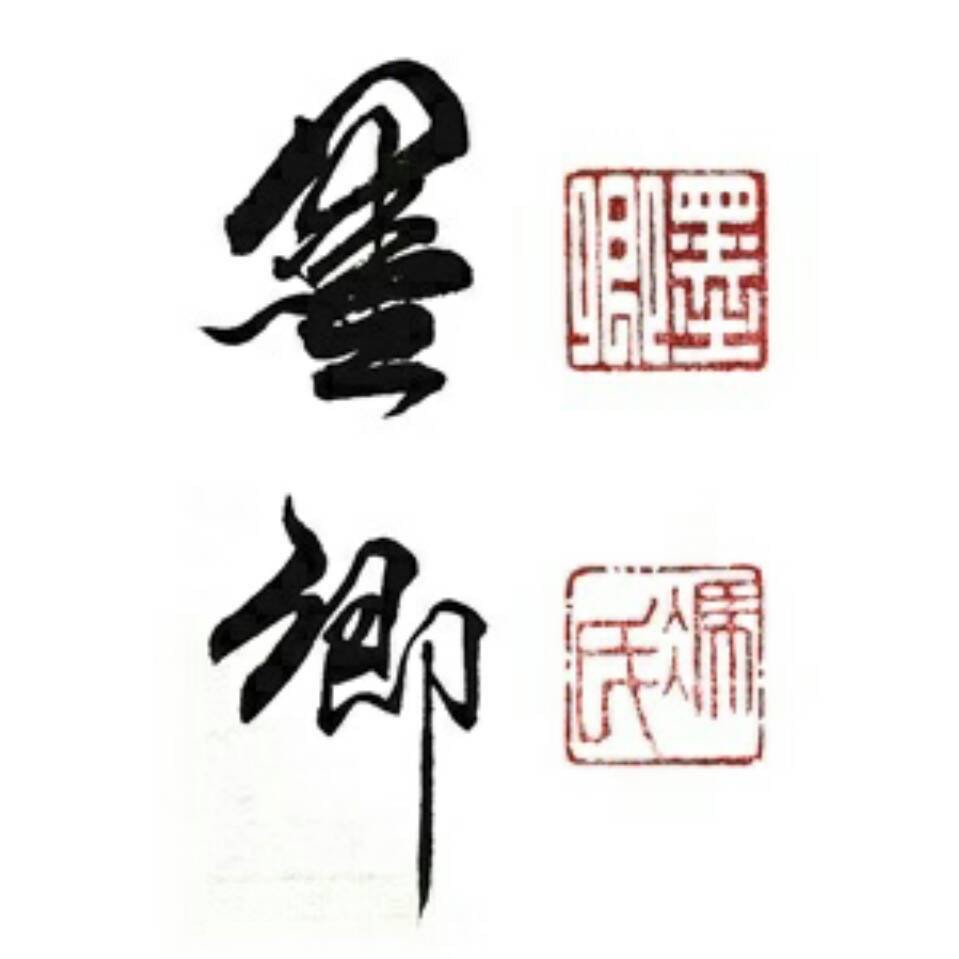 墨卿
墨卿
馮氏